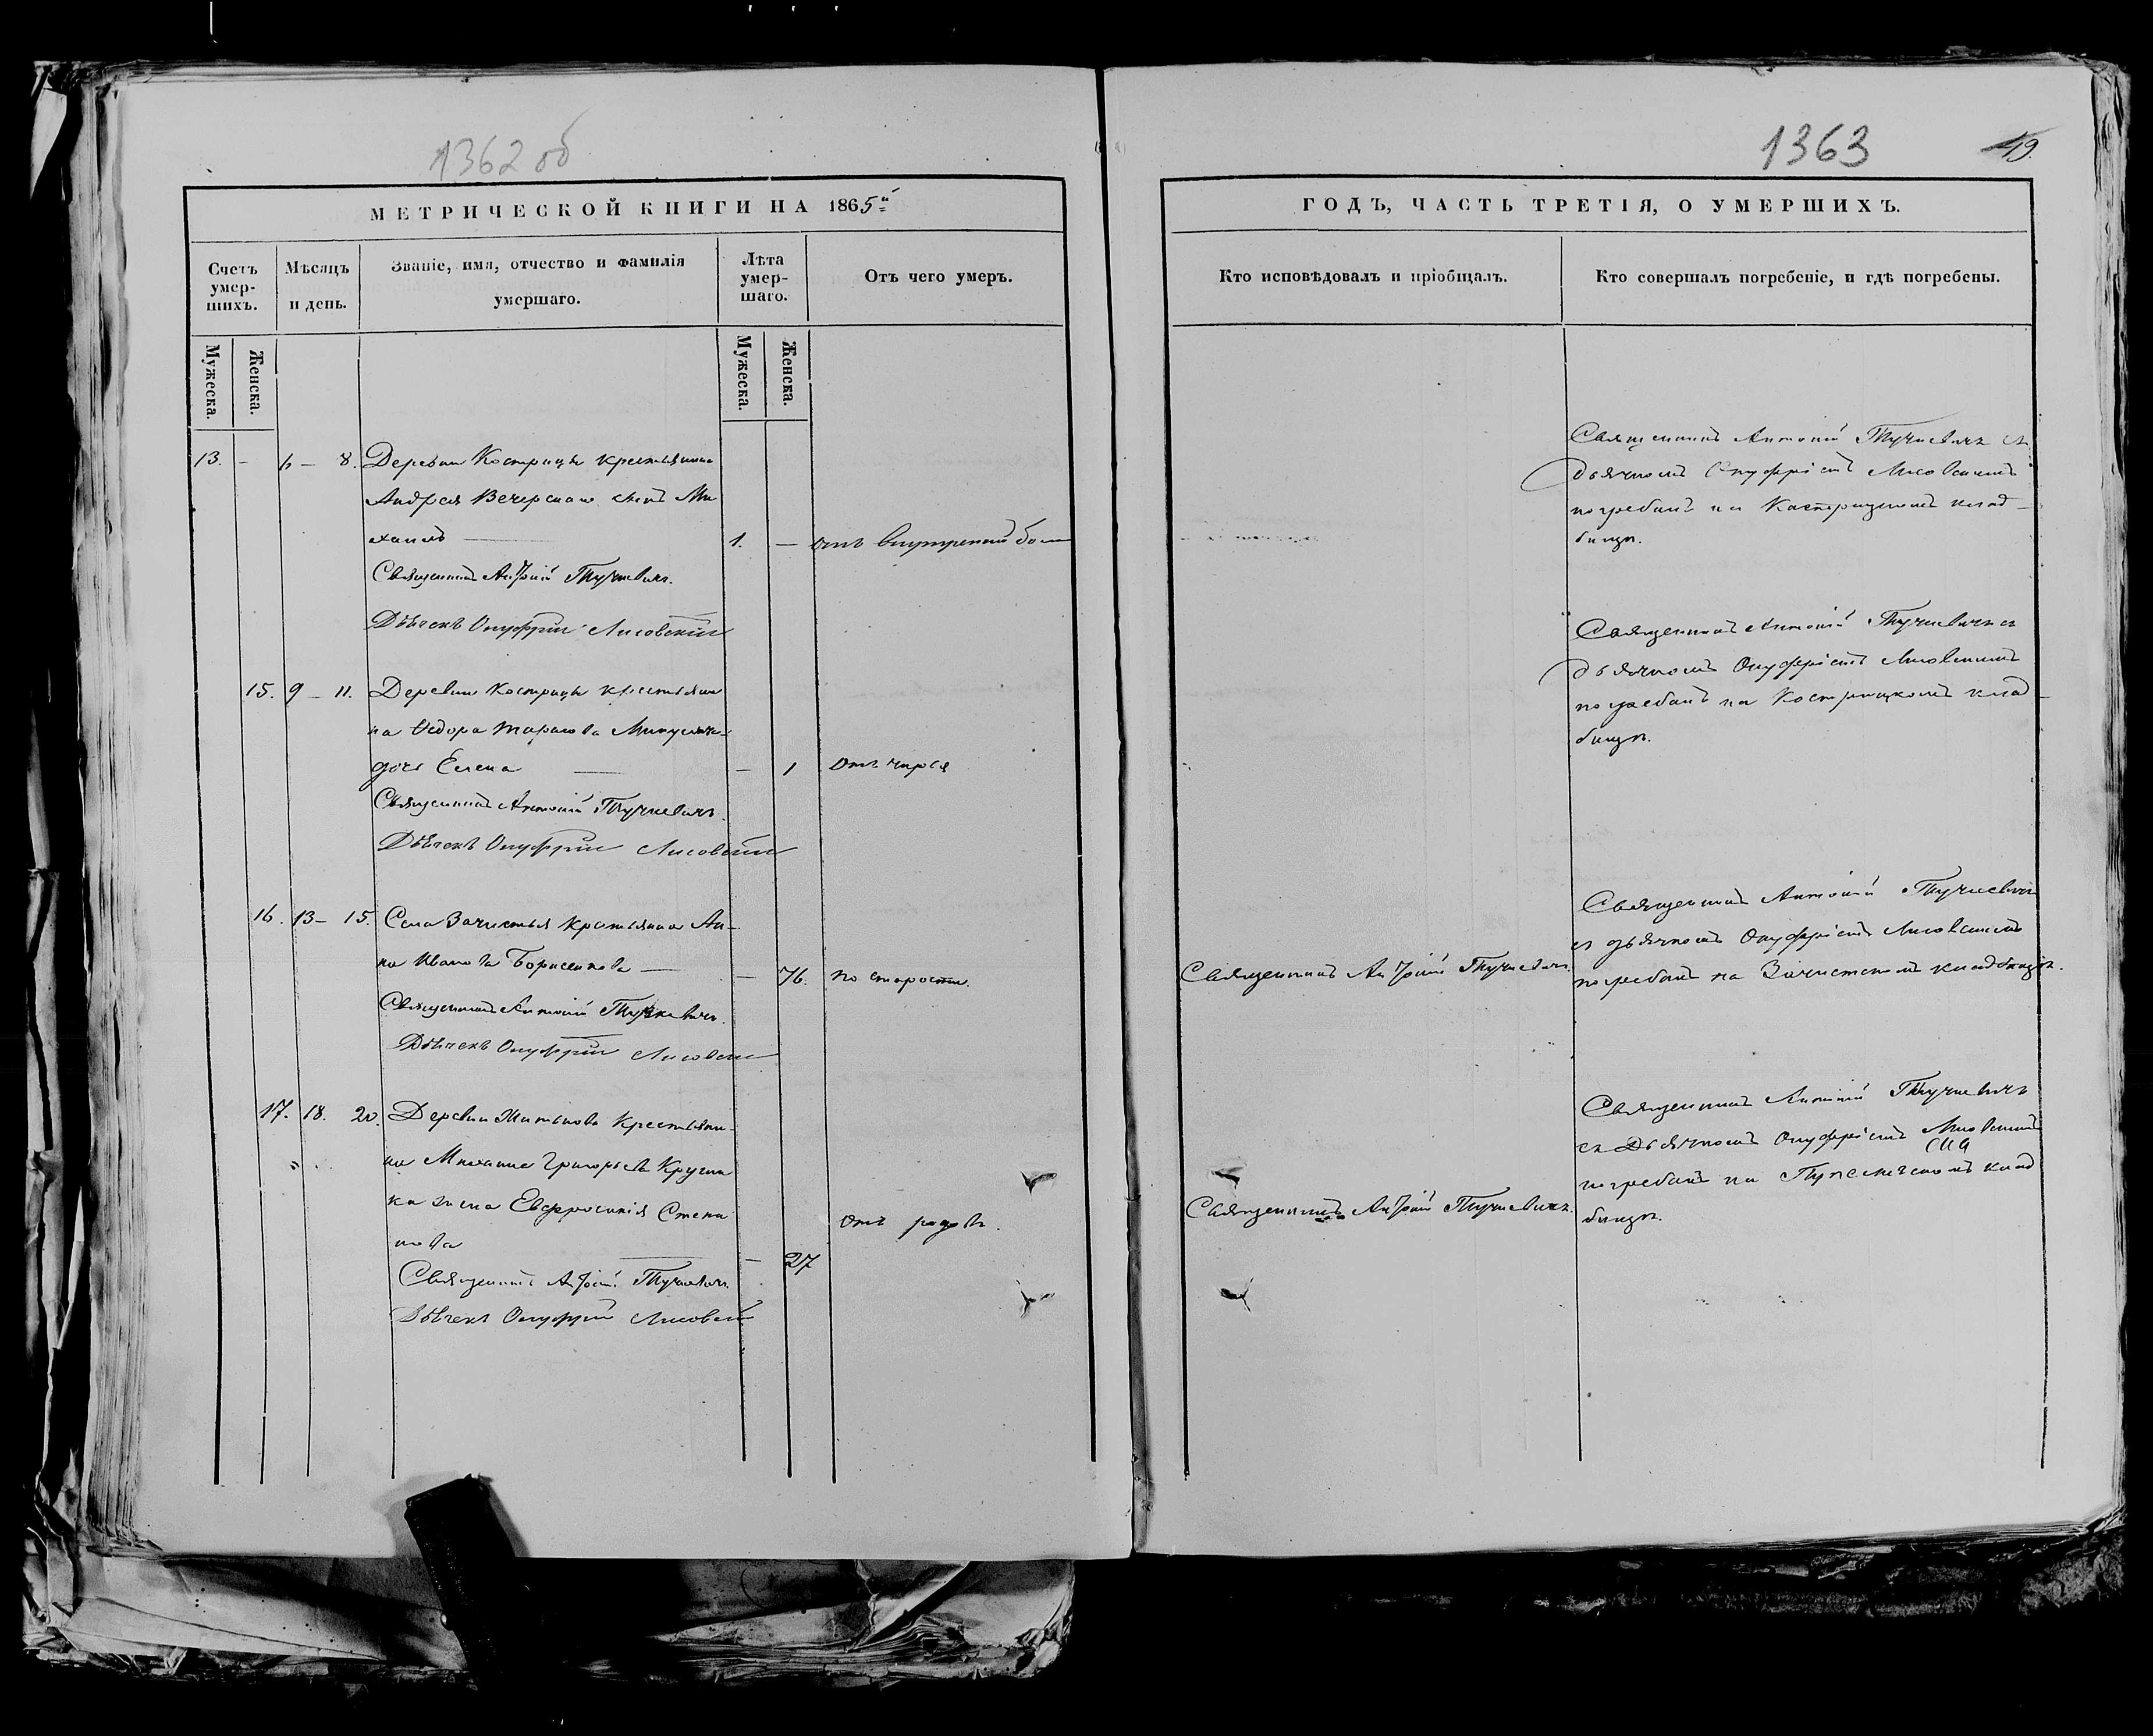 1362 об
МЕТРИЧЕСКОЙ КНИГИ НА 1865й
Счетъ умер-шихъ.
Мѣсяцъ и день.
Званіе, имя, отчество и фамилія
умершаго.
Лѣта умер-шаго.
Отъ чего умеръ.
Мужеска.
Женска.
Мужеска.
Женска.
13. - 6 - 8. Деревни Кострицы крестьянина
Андрея Вечерскаго сынъ Ми
хаилъ 1. - отъ внутренней
Священникъ Антоній Тучкевичъ.
Дьячекъ Онуфрій Лисовскій
15. 9 - 11. Деревни Кострицы крестьяни
на Ѳедора Тарасова
дочь Елена - 1 отъ
Священникъ Антоній Тучкевичъ.
Дьячекъ Онуфрій Лисовскій
16. 13 - 15. Села Зачистья крестьянка Ан-
на Иванова Борисенкова - 76. по старости.
Священникъ Антоній Тучкевичъ.
Дьячекъ Онуфрій Лисовскій
17. 18. 20. Деревни Житькова крестьяни-
на Михаила Григорьева
жена Евфросинія Степа
нова - 27 отъ родовъ.
Священникъ Антоній Тучкевичъ.
Дьячекъ Онуфрій Лисовскій
1363
49.
ГОДЪ, ЧАСТЬ ТРЕТІЯ, О УМЕРШИХЪ.
Кто исповѣдовалъ и пріобщалъ.
Кто совершалъ погребеніе, и гдѣ погребены.
Священникъ Антоній Тучкевичъ съ
дьячкомъ Онуфріемъ Лисовскимъ
погребанъ на Кострицкомъ клад-
бищѣ.
Священникъ Антоній Тучкевичъ съ
дьячкомъ Онуфріемъ Лисовскимъ
погребанъ на Кострицкомъ клад-
бищѣ.
Священникъ Антоній Тучкевичъ
съ дьячкомъ Онуфріемъ Лисовскимъ
Священникъ Антоній Тучкевичъ. погребанъ на Зачистскомъ кладбищѣ.
Священникъ Антоній Тучкевичъ
съ Дьячкомъ Онуфріемъ Лисовскимъ
погребанъ на клад
Священникъ Антоній Тучкевичъ. бищѣ.